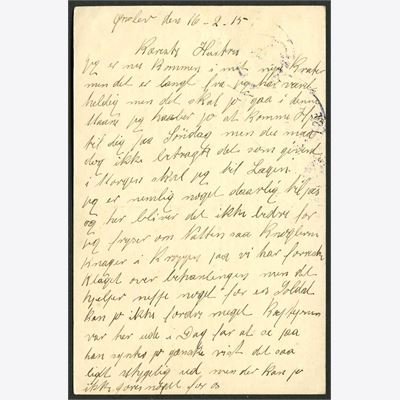 den 16-2-15
Kæreste Hustru
jeg er nu kommen i mit nye Kvarter
men det er langt fra jeg har været
heldig men det skal jo gaa i denne
jeg haaber jo at komme
til dig paa Søndag men du maa
dog ikke betragte det som givend
i Morgen skal jeg til Lagen
jeg er nemlig noget daarlig tilpas
og her bliver det ikke bedre for
jeg fryser om Natten saa Knoglerne
knager i Kroppen paa vi har
klaget over behandlingen men det
hjælper neppe noget for en Soldat
kan jo ikke fordre noget
var her ude i Dag for at se paa
han syntes jo ganske vist det saa
lidt uhyggelig ud men der kan jo
ikke gøres noget for os